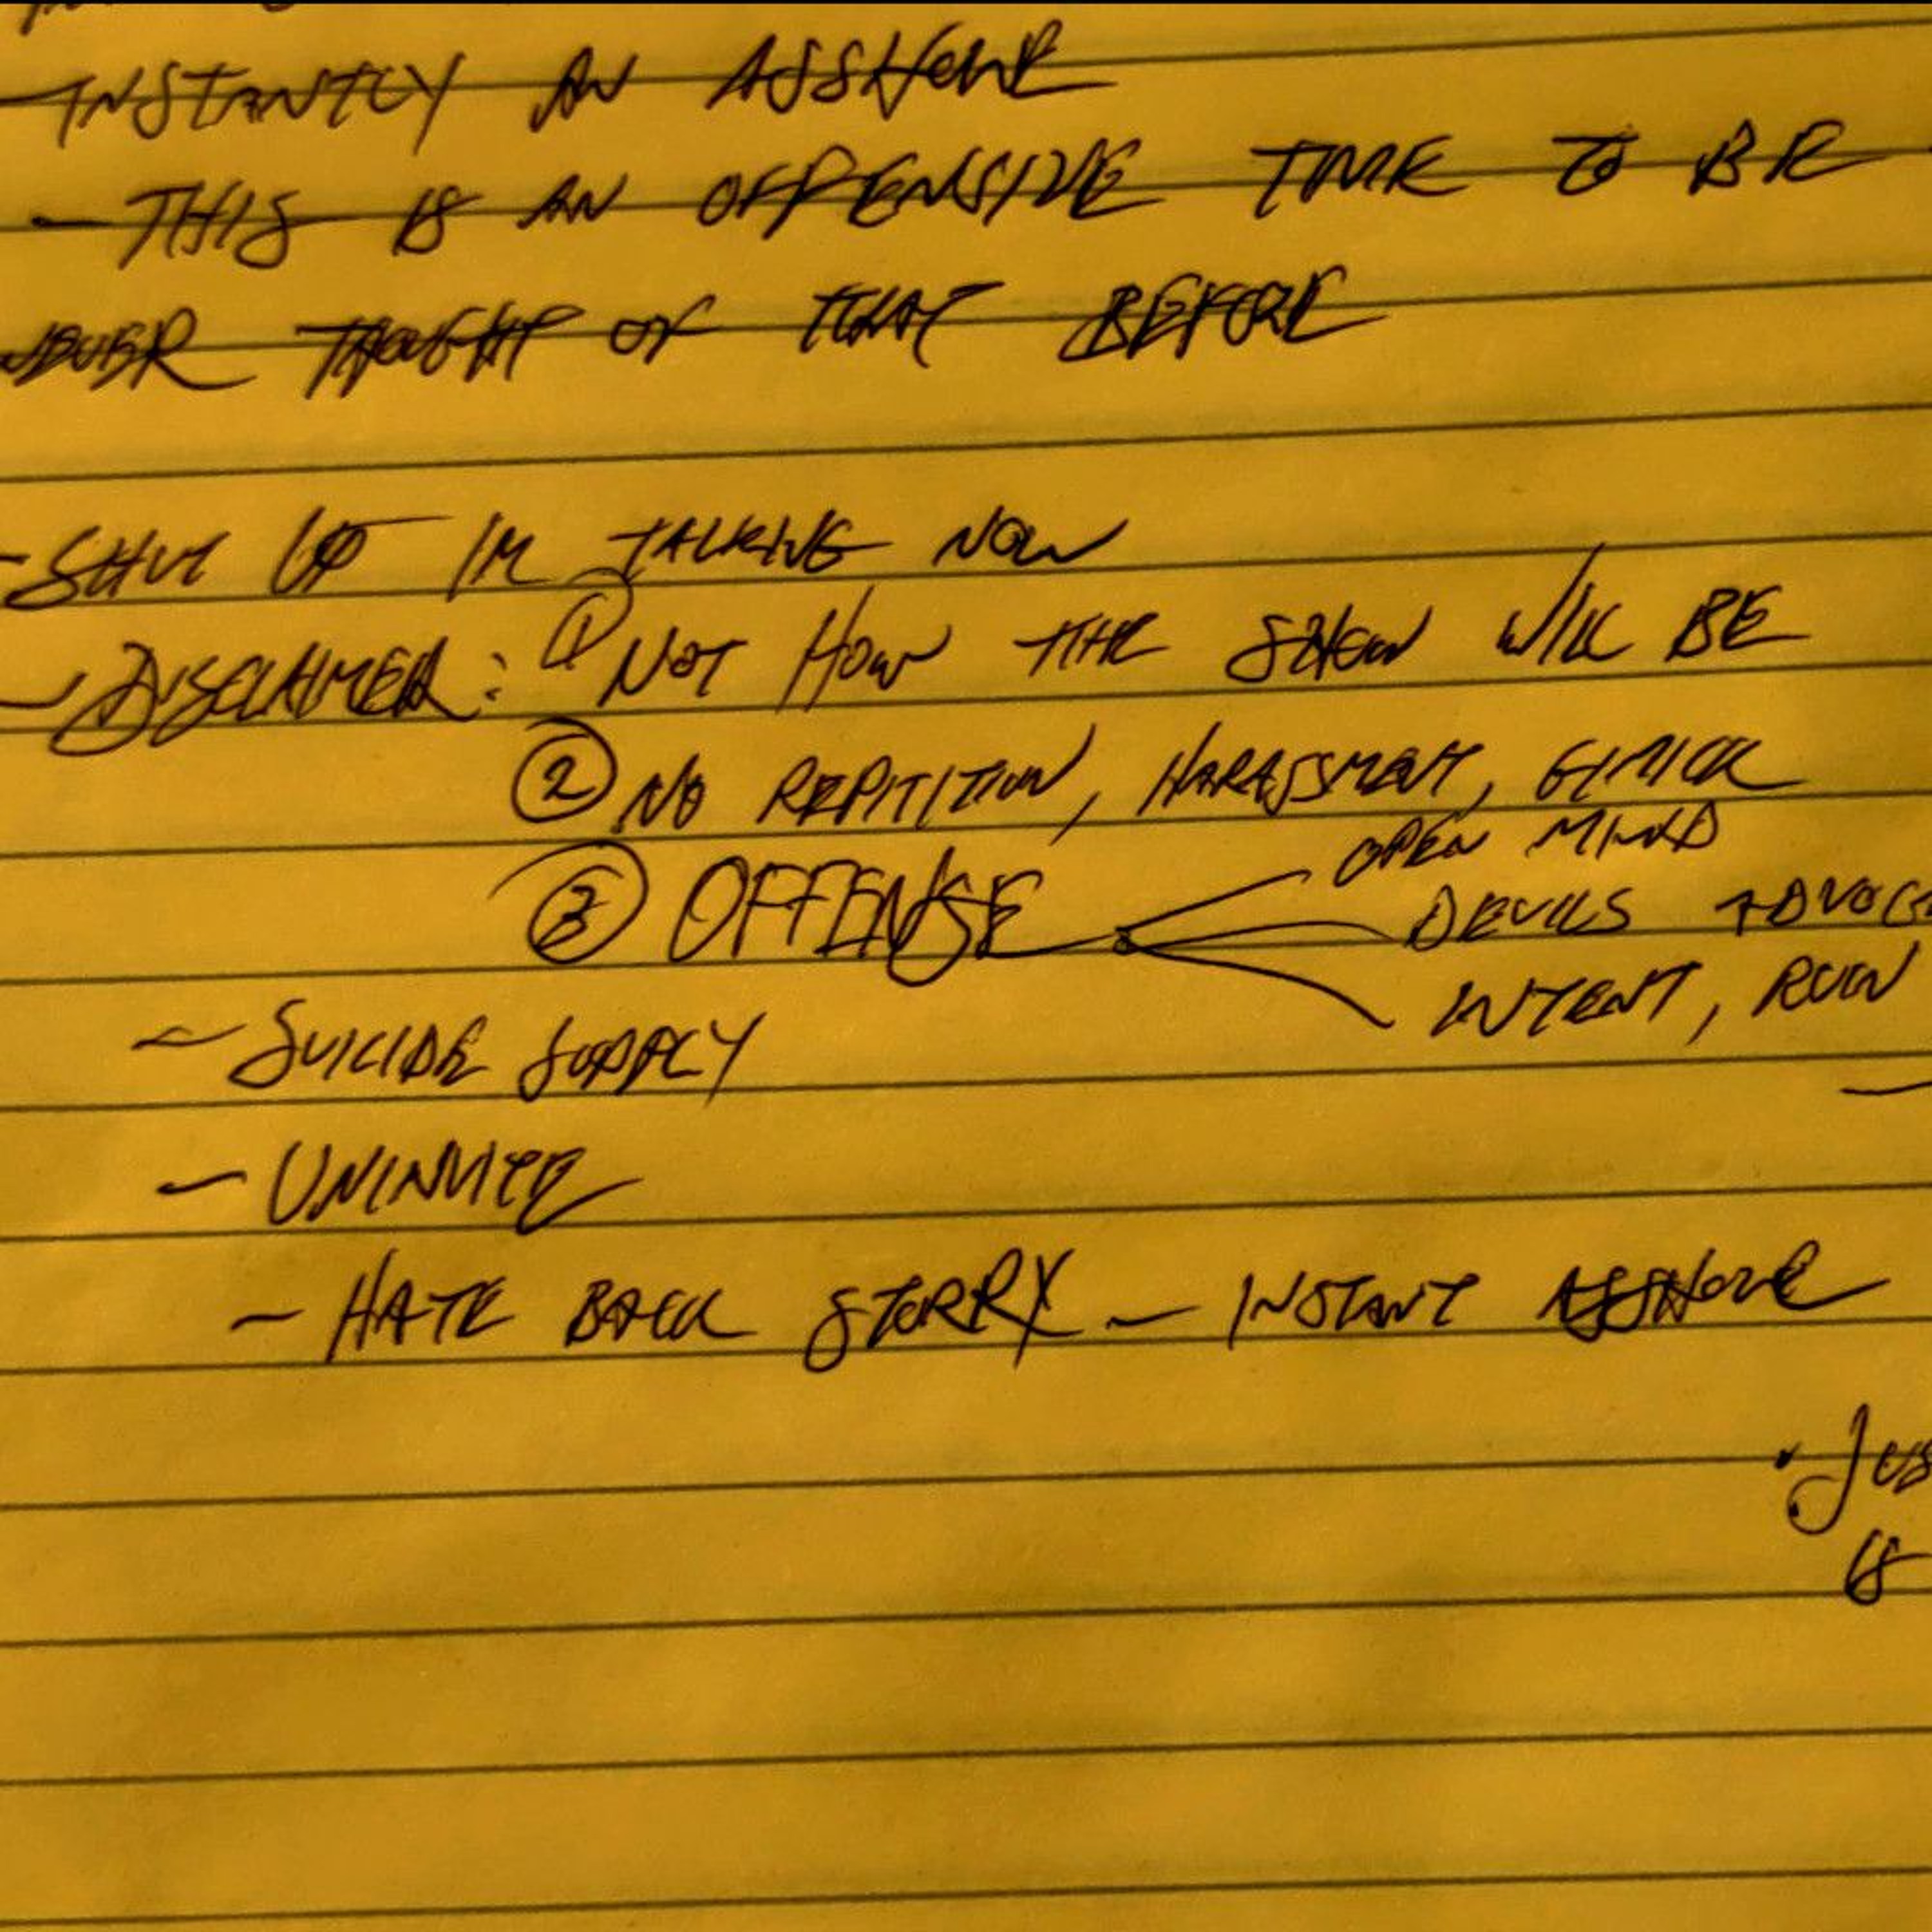 - INSTANTLY AN ASSHOLE
- THIS IS AN OFFENSIVE TIME TO BE
NEVER THOUGHT OF THAT BEFORE
- SHUT UP IM TALKING NOW
- DISCLAIMER: ① NOT HOW THE SHOW WILL BE
② NO REPITITION, HARASSMENT, GIMICK
③ OFFENSE
OPEN MIND
DEVILS ADVOC
INTENT, RUIN
- SUICIDE SUPPLY
- UNINVITE
- HATE BACK STORRY - INSTANT ASSHOLE
• JUS
IS